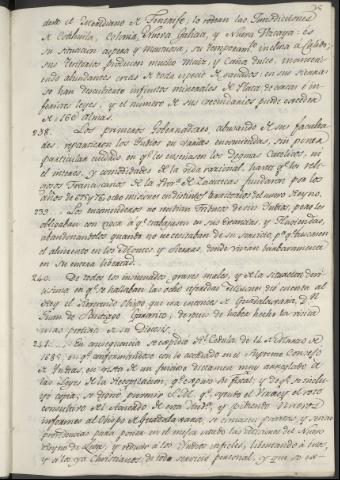 dente el Meridiano de Tenerife; lo rodean las Jurisdicciones
de Coahuila, Colonia, Nueva Galicia, y Nueva Vizcaya: es
su situacion aspera y montuosa; su temperamto inclina a Calido;
sus territorios producen mucho maiz, y Caña dulce, mantenien
abundantes crias de toda especie de ganados: en sus sierras
se han descubierto infinitos minerales de Plata de varias e in-
feriores leyes, y el numero de sus vecindarios puede exceder
de 160 almas.
238. Los primeros Governadores, abusando de sus faculta-
des, repartieron los Indios en varias encomiendas, sin poner
particular cuidado en qe les enseñasen los Dogmas Catolicos, ni
el interes, y comodidades de la vida racional, hasta qe los reli-
giosos Franciscanos de la Prova de Zacatecas fundaron por los
años de ocho misiones en distintos territorios del nuevo Reyno.
239. Los encomenderos no recibian tributos de sus Indios, pero los
obligaban con rigor a qe trabajasen en sus Grancias, y Haziendas,
abandonandolos quando no necesitaban de su servicio pa qe buscasen
el alimento en los Montes, y Sierras, donde vivian barbaramente
en su entera libertad.
240. De todos los insinuados graves males, y de la situacion
en qe se hallaban las ocho referidas Misiones dió cuenta al
Rey el Reverendo Obispo que era entonces de Guadalaxara, Dn
Juan de Santiago Garavito, despues de haber hecho la visita
de su Diocesis.
241. En consequencia se expidio Rl Cedula de 14 de Marzo de
1689, en qe conformandose con lo acordado en el Supremo Consejo
de Indias, en vista de un juicioso dictamen muy arreglado a
las Leyes de la Recopilacion, qe expuso su fiscal, y de qe se inclu-
yo copia; se dignó prevenir S.M. qe oyendo el Virrey el voto
consultivo del Acuerdo de esta Audа, y pidiendo nuevos
informes al Obispo de Guadalaxara, se tomasen prontas, y serias
providencias para poner en el mejor estado las misiones del Nuevo
Reyno de Leon, y reducir a los Indios infieles, libertando a estos,
y a los ya Christianos, de todo servicio personal, y que se